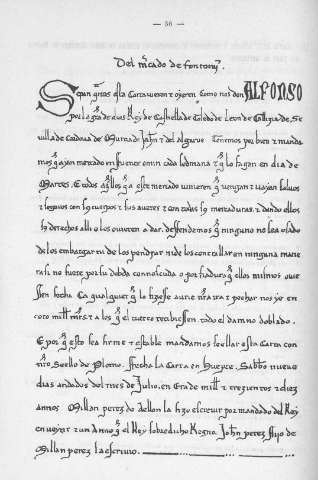 — 56 —
Del mercado de fontoria.
Sepan quantos esta Carta uieren τ oyeren Como nos don ALFONSO
por la gra de dios Rey de Castiella de Toledo de Leon de Gallizia de Se
uilla de Cordoua de Murcia de Jahen τ del algarue Tenemos por bien τ manda
mos q ayan mercado en fuente en cada sedmana τ q lo fagan en dia de
Martes. E todos aqllos q a este mercado uinieren q uengan τ uayan saluos
τ seguros con sus cuerpos τ sus aueres τ con todas sus mercaduras τ dando ellos
sus derechos alli o los ouieren a dar. deffendemos q ninguno no sea osado
de los embargar ni de los pendrar ni de los contrallar en ninguna mane
ra si no fuere por su debda connosçuda o por fiadura q ellos mismos ouie
ssen fecha Ca qualquier q lo fiziesse aurie nra ira τ pechar nos ye en
coto mill mrs. τ a los q el tuerto recibiessen todo el damno doblado.
E por q esto sea firme τ estable mandamos seellar esta Carta con
nro Seello de Plomo. ffecha la Carta en Sabbado nueue
dias andados del mes de Julio. en Era de mill τ trezientos τ diez
annos Millan perez de aellon la fizo escreuir por mandado del Rey
en τ un Annos q el Rey sobredicho Regna. Johan perez fijo de
Millan perez la escriuio.